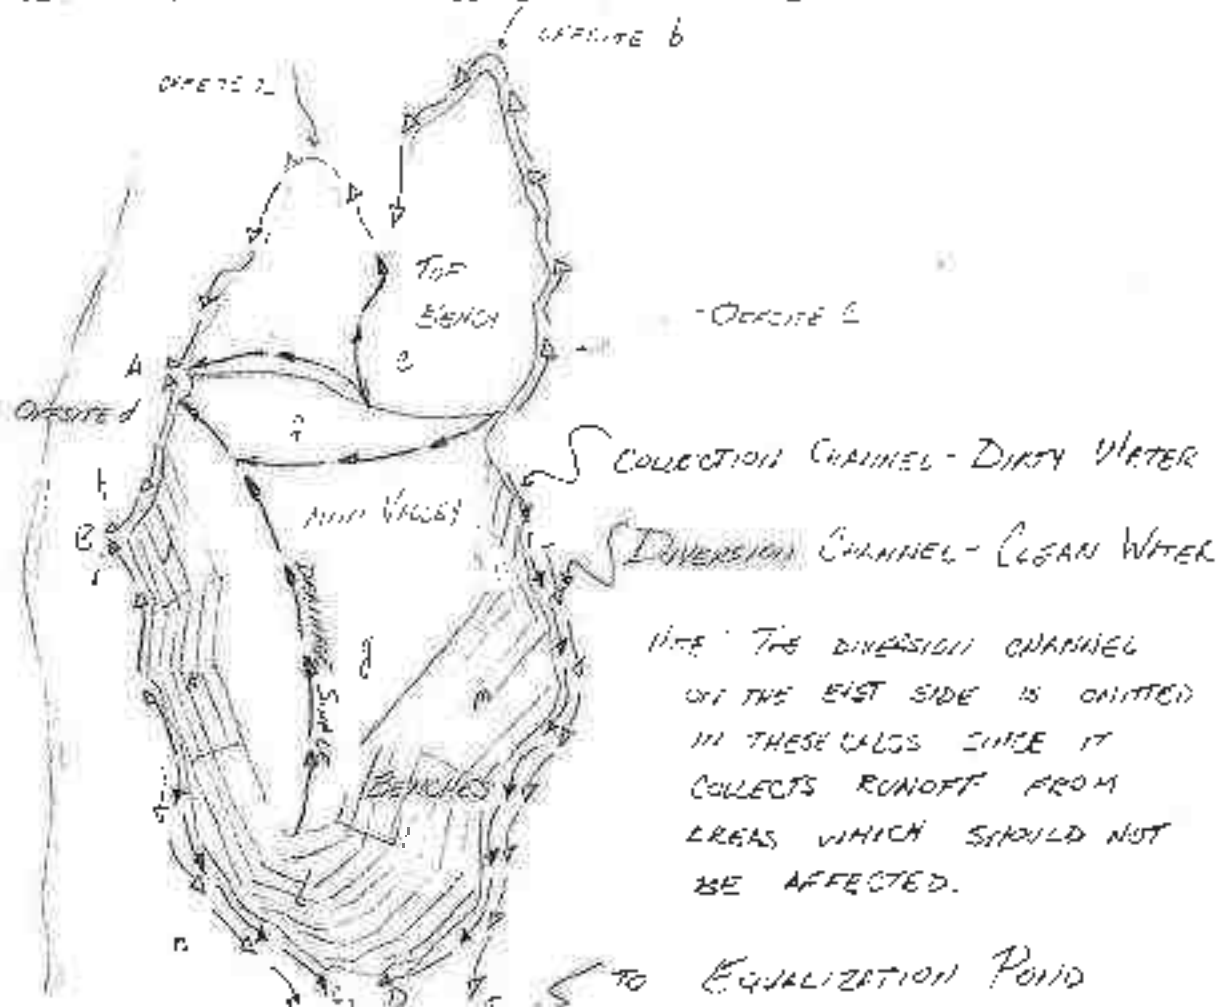 OFFSITE b
OFFSITE
TOP
BENCH
e
OFFSITE C
A
OFFSITE d
COLLECTION CHANNEL - DIRTY WATER
MAIN VALLEY
B
DIVERSION CHANNEL - CLEAN WATER
g
NOTE: THE DIVERSION CHANNEL
ON THE EAST SIDE IS OMITTED
IN THESE CALCS SINCE IT
COLLECTS RUNOFF FROM
AREAS WHICH SHOULD NOT
BE AFFECTED.
BENCHES
n
D
TO EQUALIZATION POND